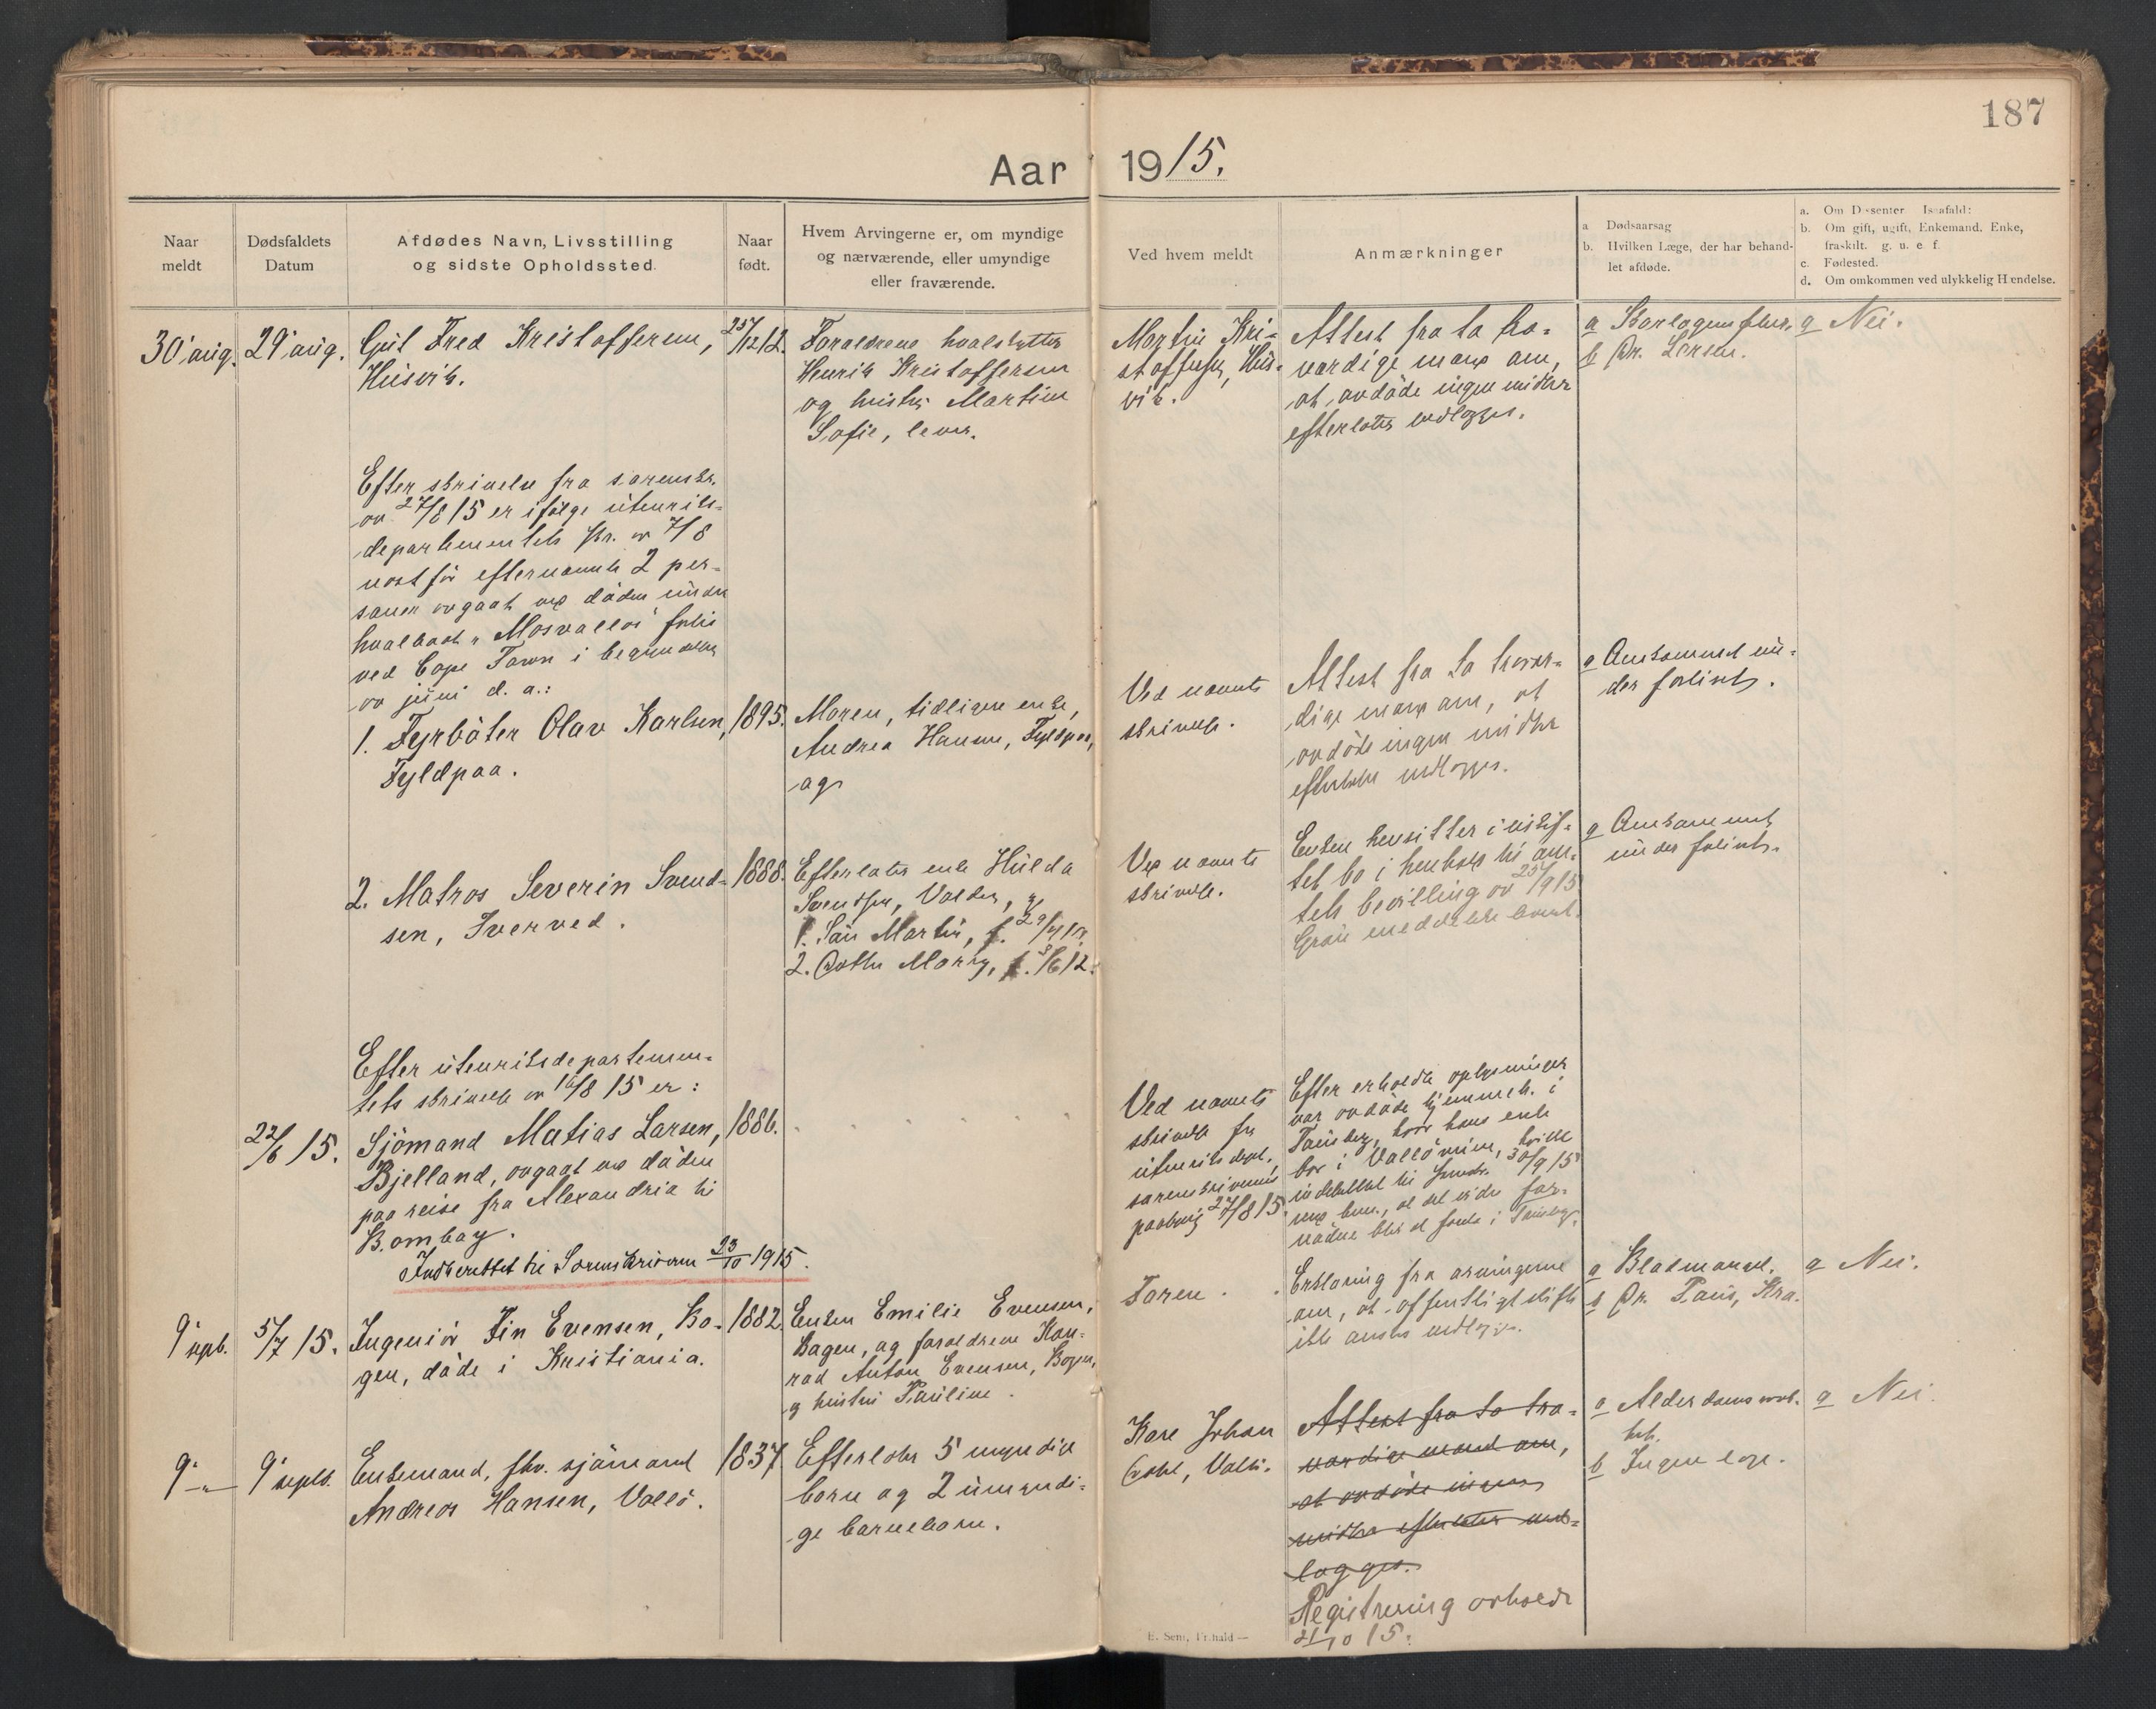 187
Aar 1915.
Naar
meldt
Dødsfaldets
Datum
Afdødes Navn, Livsstilling
og sidste Opholdssted.
Naar
født.
Hvem Arvingerne er, om myndige
og nærværende, eller umyndige
eller fraværende.
Ved hvem meldt
Anmærkninger
a Dødsaarsag
b. Hvilken Læge, der har behand-
let afdøde.
a. Om Dissenter Isaafald:
b. Om gift, ugift, Enkemand. Enke,
fraskilt. g. u. e. f.
c. Fødested.
d. Om omkommen ved ulykkelig Hændelse.
30' aug.
29' aug.
Gut Fred Kristoffersen,
Husvik.
25/12 12.
Forældrene hvalskytter
Henrik Kristoffersen
og hustru Martine
Sofie, lever.
Martin Kri-
stoffersen, Hus-
vik.
Attest fra to tro-
værdige mænd om,
at avdøde ingen midler
efterlater vedlægges.
a
b Dr. Larsen.
a Nei.
Efter skrivelse fra sorenskr.
av 27/8 15 er ifølge utenriks-
departementets skr. av 7/8
næstfør efternævnte 2 per-
soner avgaat ved døden under
hvalbaat "Mosvallas" forlis
ved Cape Town i begyndelsen
av juni d. a.:
1. Fyrbøter Olav Karlsen,
Fyldpaa.
1895.
Moren, tidligere enke,
Andrea Hansen, Fyldpaa,
og
Ved nævnte
skrivelse.
Attest fra to trovær-
dige mænd om, at
avdøde ingen midler
efterlater vedlægges.
a Omkommet un-
der forliset.
2. Matros Severin Svend-
sen, Sverved.
1888.
Efterlater enke Hulda
Svendsen, Valder, og
1. Søn Martin, f.
2. Datter Mary, f. 8/6 12.
Ved nævnte
skrivelse.
Enken hensitter i uskif-
tet bo i henhold til am-
tets bevilling av 25/9 15
a Omkommet
under forliset.
Efter utenriksdepartemen-
tets skrivelse av 16/8 15 er:
22/6 15.
Sjømand Matias Larsen,
Bjelland, avgaat ved døden
paa reise fra Alexandria til
Bombay.
Indberettet til Sorenskriveren 23/10 1915.
1886.
Ved nævnte
skrivelse fra
utenriksdept.,
sorenskriverens
paategn. 27/8 15.
Efter erholdte oplysninger
var avdøde hjemmeh. i
Tønsberg, hvor hans enke
bor i Valløveien, hvilket
indberettet til sorenskr. 30/9 15
9' sept.
5/7 15.
Ingeniør Fin Evensen, Ba-
gen, døde i Kristiania.
1882.
Enken Emilie Evensen,
Bagen, og forældrene Kon-
rad Anton Evensen, Bagen,
og hustru Pauline.
Faren.
Erklæring fra arvingerne
om, at offentligt skifte
ikke ønskes vedlægges.
a Blodmangel.
b Dr. Paus, Kra.
a Nei.
9' - " -
9' septb.
Enkemand, fhv. sjømand
Andreas Hansen, Vallø.
1837.
Efterlater 5 myndige
børn og 2 umyndi-
ge barnebørn.
Karl Johan
Dahl, Vallø.
Attest fra to tro-
værdige mænd om,
at avdøde ingen
midler efterlater ved-
lægges.
Registrering avholdt
21/10 15.
a Alderdomssvak-
het.
b Ingen læge.
a Nei.
E. Sem, Fr.hald —